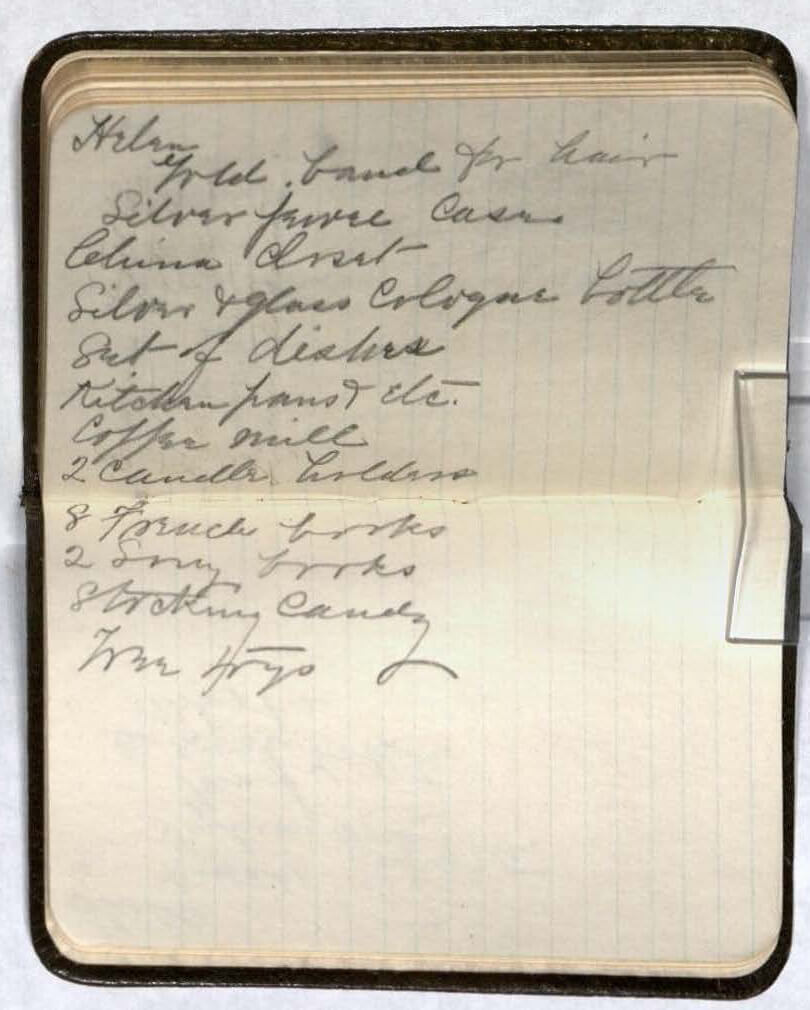 Helen
Gold band for hair
Silver purse case
China closet
Silver & glass Cologne bottle
Set of dishes
Kitchen pans & etc.
Coffee mill
2 Candle holders
8 French books
2 Song books
Stocking Candy
Tree toys